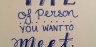 THE
of Person
YOU WANT TO
meet